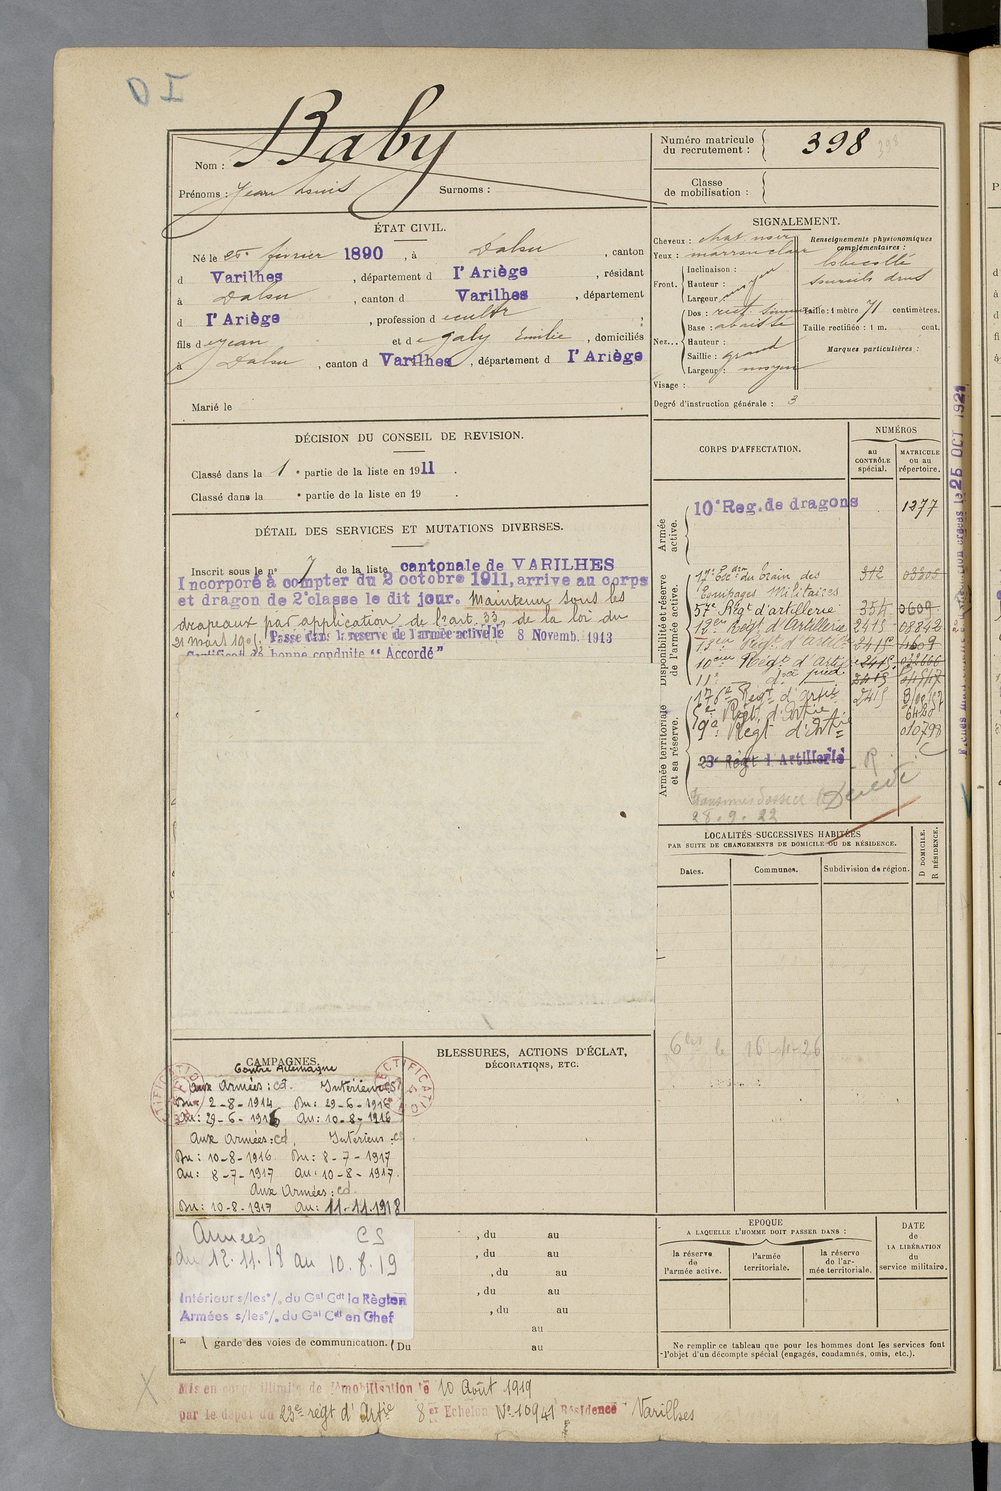 D I
Nom : Baby
Prénoms : Jean Louis Surnoms :
Numéro matricule du recrutement : 398
Classe de mobilisation :
ÉTAT CIVIL.
Né le 25 février 1890, à Dalou, canton
d Varilhes, département d l'Ariège, résidant
à Dalou, canton d Varilhes, département
d l'Ariège, profession de cultr
fils de Jean et de Galy Emilie, domiciliés
à Dalou, canton d Varilhes, département d l'Ariège
Marié le
SIGNALEMENT.
Cheveux : chat noir
Yeux : marron clair
Front. Inclinaison : Hauteur : Largeur : moyen
Nez... Dos : rect
Base : abaissée
Hauteur :
Saillie : grand
Largeur : moyen
Visage :
Degré d'instruction générale : 3
Renseignements physionomiques complémentaires :
sourcils drus
Taille : 1 mètre 71 centimètres.
Taille rectifiée : 1 m. cent.
Marques particulières :
DÉCISION DU CONSEIL DE REVISION.
Classé dans la 1e partie de la liste en 1911.
Classé dans la e partie de la liste en 19 .
DÉTAIL DES SERVICES ET MUTATIONS DIVERSES.
Inscrit sous le n° 7 de la liste cantonale de VARILHES
Incorporé à compter du 2 octobre 1911, arrive au corps
et dragon de 2e classe le dit jour. Maintenu sous les
drapeaux par application de l'art. 33 de la loi du
21 mars 1905. Passé dans la reserve de l'armée active le 8 Novemb. 1913
Certificat de bonne conduite "Accordé"
CORPS D'AFFECTATION.
NUMÉROS
au CONTRÔLE spécial.
MATRICULE ou au répertoire.
Armée active.
10e Reg. de dragons 1277
Disponibilité et réserve de l'armée active.
17e Escdron du Train des 312
Equipages Militaires
57e Régt d'artillerie 354 0609
12eme Régt d'Artillerie 2415 08842
10eme Régt d'Artie 2415
11e d° à pied 2415
176e Regt d'Artie 2415
Armée territoriale et sa réserve.
5e Régt d'Artie
9e Regt d'Artie 010798
23e Régt d'Artillerie R
28.9.22
LOCALITÉS SUCCESSIVES HABITÉES
PAR SUITE DE CHANGEMENTS DE DOMICILE OU DE RÉSIDENCE.
Dates. Communes. Subdivision de région. D DOMICILE. R RÉSIDENCE.
le 16-4-26
25 OCT 1921
CAMPAGNES.
Contre Allemagne
Aux Armées : cd. Intérieur CS
Du : 2-8-1914 Du : 29-6-1916
Au : 29-6-1916 Au : 10-8-1916
Aux Armées : cd, Intérieur : CS
Du : 10-8-1916 Du : 8-7-1917
Au : 8-7-1917 Au : 10-8-1917
Aux Armées : cd
Du : 10-8-1917 Au : 11-11-1918
RECTIFICATION
RECTIFICATION
Armées CS
du 12.11.18 au 10.8.19
Intérieur s/les o/. du Gal Cdt la Région
Armées s/les o/. du Gal Cdt en Chef
garde des voies de communication. (Du au
BLESSURES, ACTIONS D'ÉCLAT,
DÉCORATIONS, ETC.
, du au
, du au
, du au
, du au
, du au
au
EPOQUE
A LAQUELLE L'HOMME DOIT PASSER DANS :
la réserve de l'armée active.
l'armée territoriale.
la réserve de l'armée territoriale.
DATE
de
LA LIBÉRATION
du
service militaire.
Ne remplir ce tableau que pour les hommes dont les services font
l'objet d'un décompte spécial (engagés, condamnés, omis, etc.).
Mis en congé illimité de démobilisation le 10 Août 1919
par le dépot du 23e régt d'Artie 8e Echelon N° 10941 Résidence Varilhes